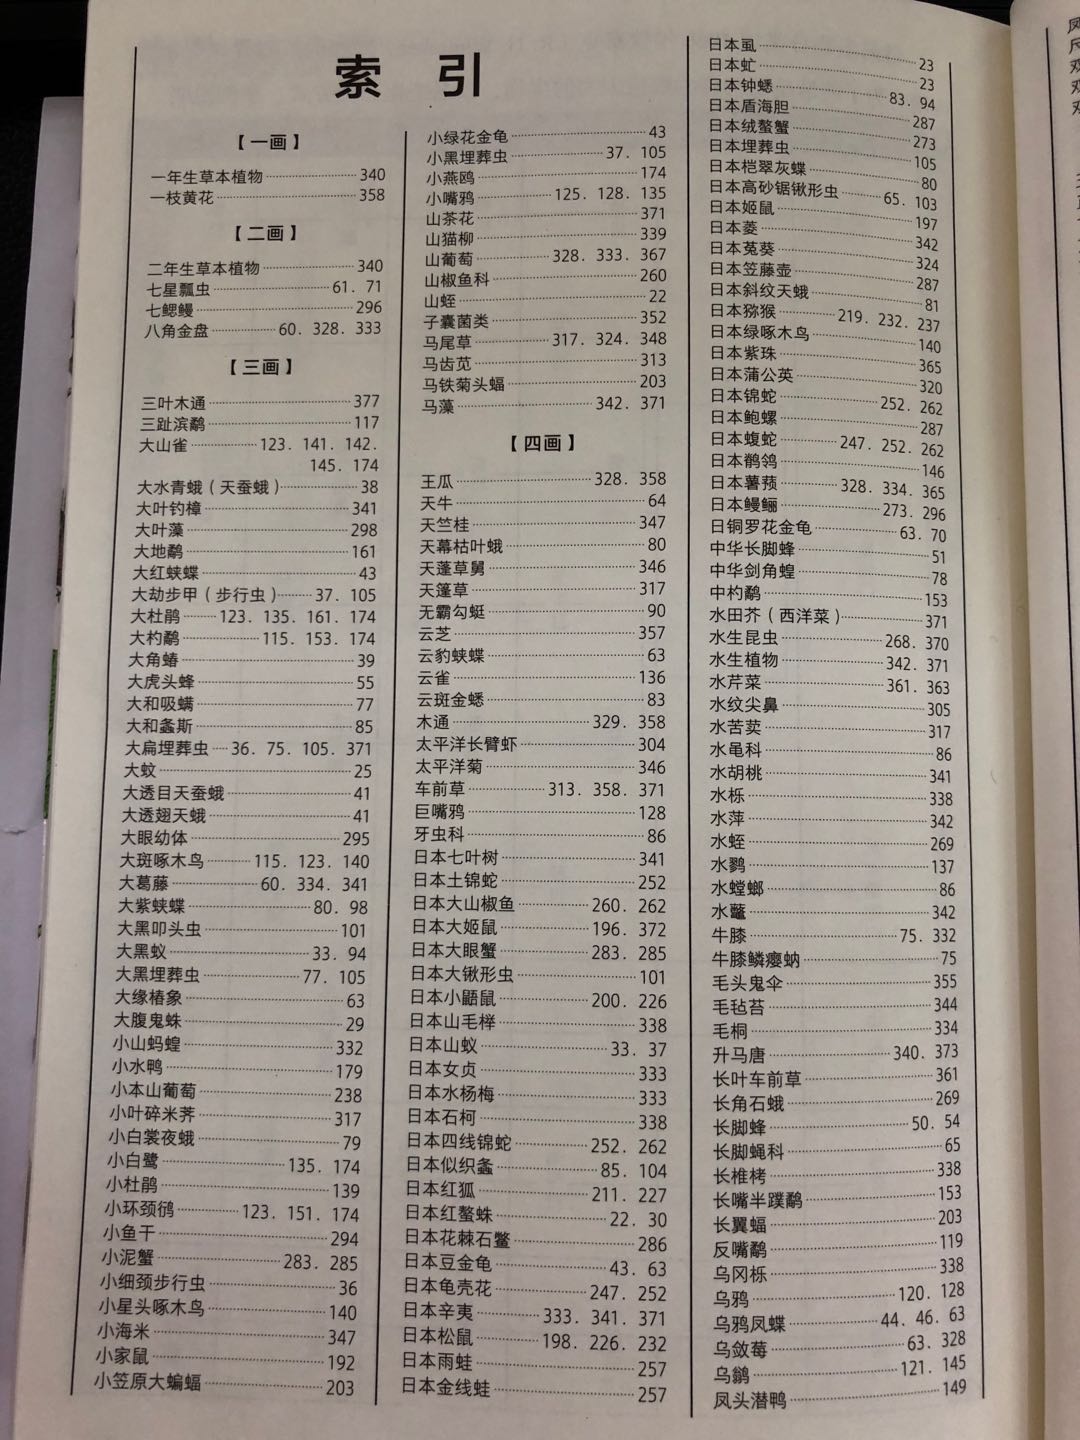 索 引
【一画】
一年生草本植物 340
一枝黄花 358
【二画】
二年生草本植物 340
七星瓢虫 61. 71
七鳃鳗 296
八角金盘 60. 328. 333
【三画】
三叶木通 377
三趾滨鹬 117
大山雀 123. 141. 142.
145. 174
大水青蛾（天蚕蛾） 38
大叶钓樟 341
大叶藻 298
大地鹬 161
大红蛱蝶 43
大劫步甲（步行虫） 37. 105
大杜鹃 123. 135. 161. 174
大杓鹬 115. 153. 174
大角蝽 39
大虎头蜂 55
大和吸螨 77
大和螽斯 85
大扁埋葬虫 36. 75. 105. 371
大蚊 25
大透目天蚕蛾 41
大透翅天蛾 41
大眼幼体 295
大斑啄木鸟 115. 123. 140
大葛藤 60. 334. 341
大紫蛱蝶 80. 98
大黑叩头虫 101
大黑蚁 33. 94
大黑埋葬虫 77. 105
大缘椿象 63
大腹鬼蛛 29
小山蚂蝗 332
小水鸭 179
小本山葡萄 238
小叶碎米荠 317
小白裳夜蛾 79
小白鹭 135. 174
小杜鹃 139
小环颈鸻 123. 151. 174
小鱼干 294
小泥蟹 283. 285
小细颈步行虫 36
小星头啄木鸟 140
小海米 347
小家鼠 192
小笠原大蝙蝠 203
小绿花金龟 43
小黑埋葬虫 37. 105
小燕鸥 174
小嘴鸦 125. 128. 135
山茶花 371
山猫柳 339
山葡萄 328. 333. 367
山椒鱼科 260
山蛭 22
子囊菌类 352
马尾草 317. 324. 348
马齿苋 313
马铁菊头蝠 203
马藻 342. 371
【四画】
王瓜 328. 358
天牛 64
天竺桂 347
天幕枯叶蛾 80
天蓬草舅 346
天篷草 317
无霸勾蜓 90
云芝 357
云豹蛱蝶 63
云雀 136
云斑金蟋 83
木通 329. 358
太平洋长臂虾 304
太平洋菊 346
车前草 313. 358. 371
巨嘴鸦 128
牙虫科 86
日本七叶树 341
日本土锦蛇 252
日本大山椒鱼 260. 262
日本大姬鼠 196. 372
日本大眼蟹 283. 285
日本大锹形虫 101
日本小鼯鼠 200. 226
日本山毛榉 338
日本山蚁 33. 37
日本女贞 333
日本水杨梅 333
日本石柯 338
日本四线锦蛇 252. 262
日本似织螽 85. 104
日本红狐 211. 227
日本红螯蛛 22. 30
日本花棘石鳖 286
日本豆金龟 43. 63
日本龟壳花 247. 252
日本辛夷 333. 341. 371
日本松鼠 198. 226. 232
日本雨蛙 257
日本金线蛙 257
日本虱 23
日本虻 23
日本钟蟋 83. 94
日本盾海胆 287
日本绒螯蟹 273
日本埋葬虫 105
日本桤翠灰蝶 80
日本高砂锯锹形虫 65. 103
日本姬鼠 197
日本菱 342
日本菟葵 324
日本笠藤壶 287
日本斜纹天蛾 81
日本猕猴 219. 232. 237
日本绿啄木鸟 140
日本紫珠 365
日本蒲公英 320
日本锦蛇 252. 262
日本鲍螺 287
日本蝮蛇 247. 252. 262
日本鹡鸰 146
日本薯蓣 328. 334. 365
日本鳗鲡 273. 296
日铜罗花金龟 63. 70
中华长脚蜂 51
中华剑角蝗 78
中杓鹬 153
水田芥（西洋菜） 371
水生昆虫 268. 370
水生植物 342. 371
水芹菜 361. 363
水纹尖鼻 305
水苦荬 317
水黾科 86
水胡桃 341
水栎 338
水萍 342
水蛭 269
水鹨 137
水螳螂 86
水虌 342
牛膝 75. 332
牛膝鳞瘿蚋 75
毛头鬼伞 355
毛毡苔 344
毛桐 334
升马唐 340. 373
长叶车前草 361
长角石蛾 269
长脚蜂 50. 54
长脚蝇科 65
长椎栲 338
长嘴半蹼鹬 153
长翼蝠 203
反嘴鹬 119
乌冈栎 338
乌鸦 120. 128
乌鸦凤蝶 44. 46. 63
乌敛莓 63. 328
乌鶲 121. 145
凤头潜鸭 149